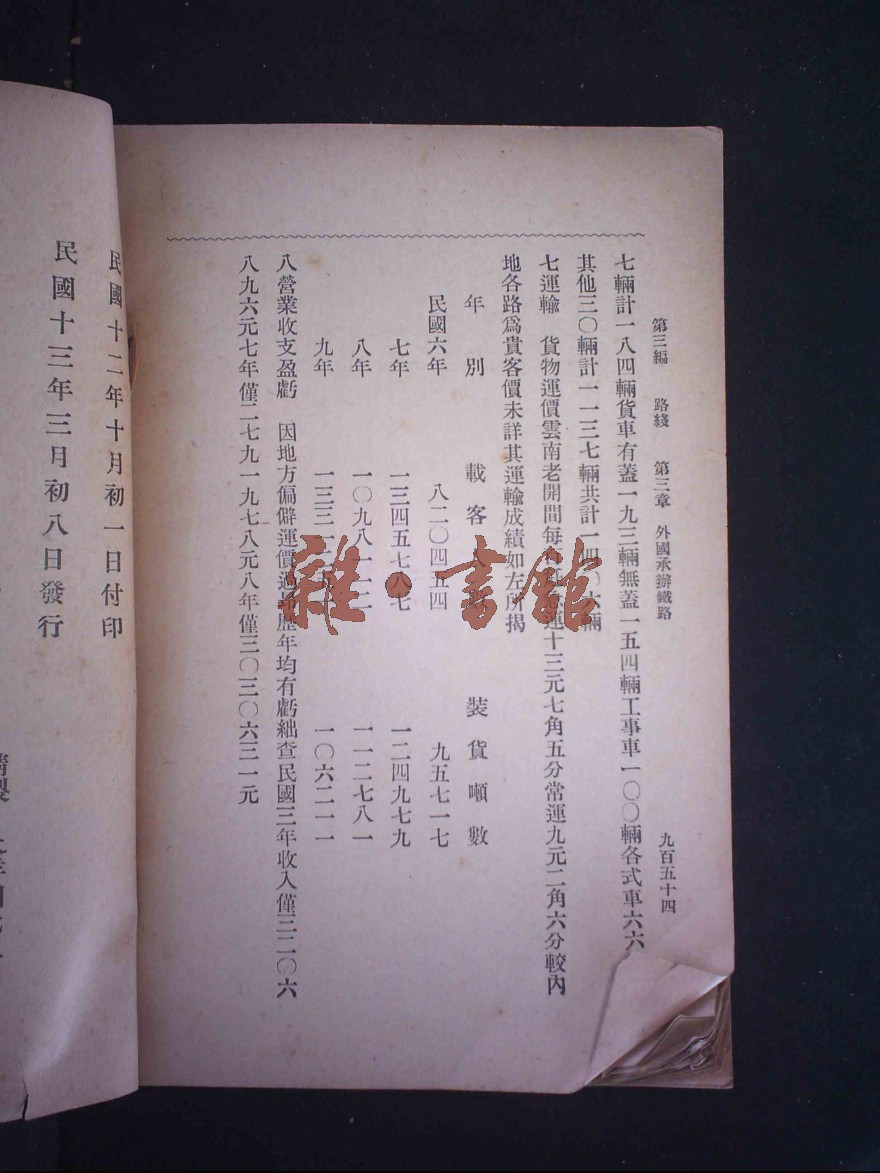 第三編 路綫 第三章 外國承辦鐵路 九百五十四
七輛計一八四輛貨車有蓋一九三輛無蓋一五四輛工事車一〇〇輛各式車六六
其他三〇輛計一一三七輛共計一四〇六輛
七運輸 貨物運價雲南老開間每 運十三元七角五分常運九元二角六分較內
地各路爲貴客價未詳其運輸成績如左所揭
年別 載客 裝貨噸數
民國六年 八二〇四五四 九五七一七
七年 一三四五七八七 一二四九七九
八年 一〇九八一一二 一一二七八一
九年 一三三一 一〇六二一一
八營業收支盈虧 因地方偏僻運價過昂歷年均有虧絀查民國三年收入僅三二〇六
八九六元七年僅二七九一九七八元八年僅三〇三〇六三一元
民國十二年十月初一日付印
民國十三年三月初八日發行
雜·書館